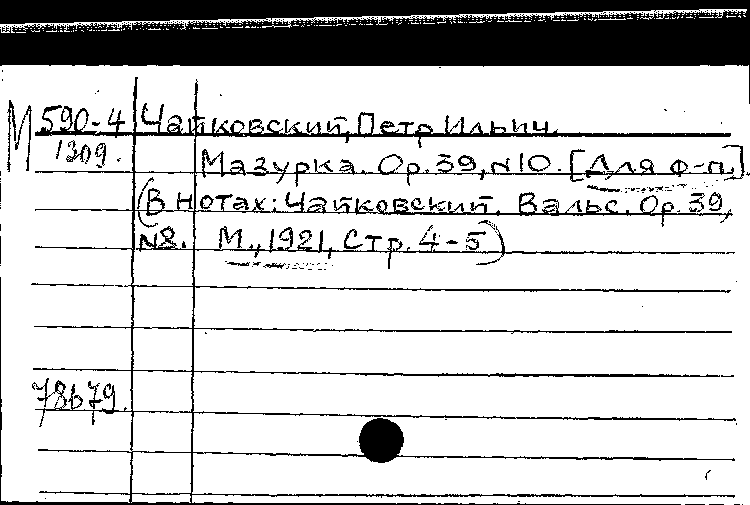 М 590-4 Чайковский, Петр Ильич.
1309. Мазурка. Ор. 39, №10. [Для ф-п.].
(В нотах: Чайковский. Вальс. Ор. 39,
№8. М., 1921, Стр. 4-5)
78679.